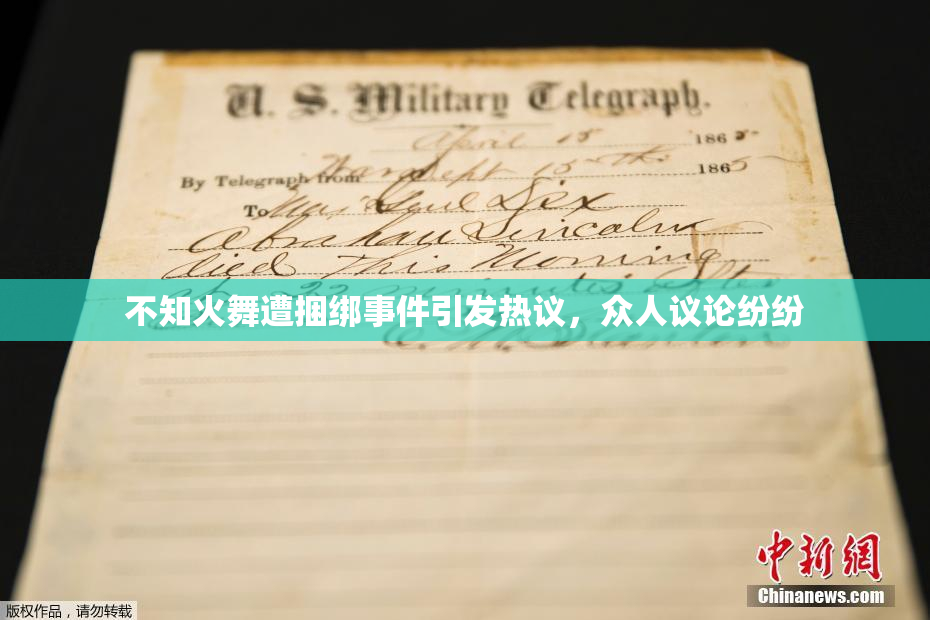 U. S. Military Telegraph.
April 15 1865
By Telegraph from War Dept 15th 1865
To Maj Genl Dix
Abraham Lincoln
died This Morning
22 minutes after
不知火舞遭捆绑事件引发热议，众人议论纷纷
中新网
Chinanews.com
版权作品，请勿转载